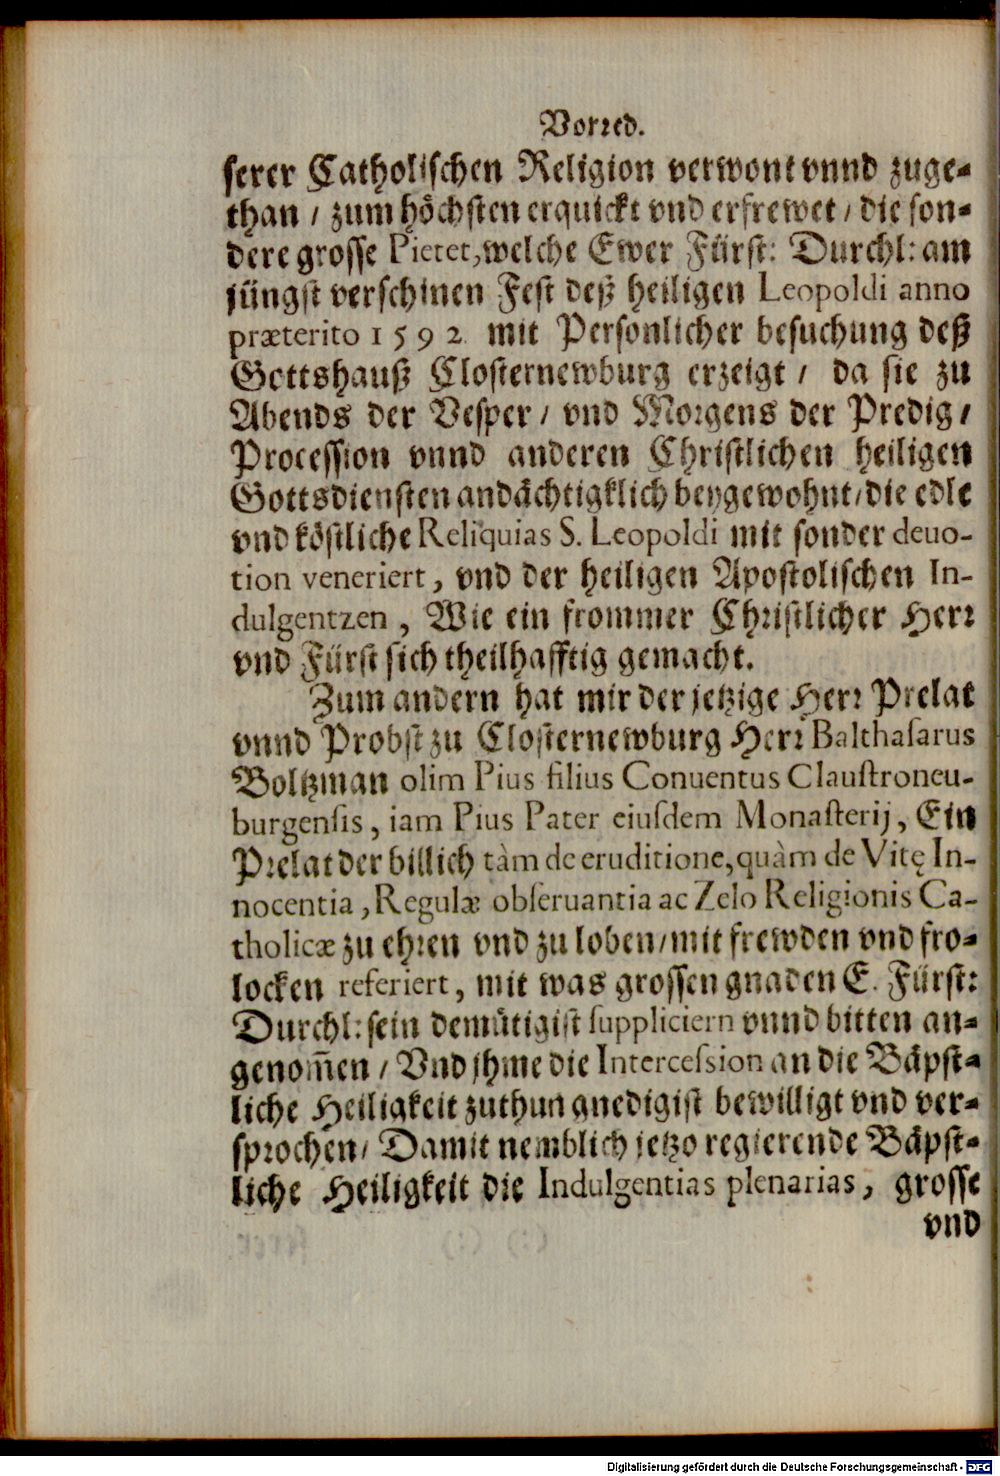 Vorred.
serer Catholischen Religion verwont vnnd zuge-
than / zum höchsten erquickt vnd erfrewet / die son-
dere grosse Pietet, welche Ewer Fürst: Durchl: am
jüngst verschinen Fest deß heiligen Leopoldi anno
præterito 1592. mit Personlicher besuchung deß
Gottshauß Closternewburg erzeigt / da sie zu
Abends der Vesper / vnd Morgens der Predig /
Procession vnnd anderen Christlichen heiligen
Gottsdiensten andächtigklich beygewohnt / die edle
vnd köstliche Reliquias S. Leopoldi mit sonder deuo-
tion veneriert, vnd der heiligen Apostolischen In-
dulgentzen, Wie ein frommer Christlicher Herr
vnd Fürst sich theilhafftig gemacht.
Zum andern hat mir der jetzige Herr Prelat
vnnd Probst zu Closternewburg Herr Balthasarus
Boltzman olim Pius filius Conuentus Claustroneu-
burgensis, iam Pius Pater eiusdem Monasterij, Ein
Prelat der billich tàm de eruditione, quàm de Vitę In-
nocentia, Regulæ obseruantia ac Zelo Religionis Ca-
tholicæ zu ehren vnd zu loben / mit frewden vnd fro-
locken referiert, mit was grossen gnaden E. Fürst:
Durchl: sein demütigist suppliciern vnnd bitten an-
genom̃en / Vnd jhme die Intercession an die Bäpst-
liche Heiligkeit zuthun gnedigist bewilligt vnd ver-
sprochen / Damit nemblich jetzo regierende Bäpst-
liche Heiligkeit die Indulgentias plenarias, grosse
vnd
Digitalisierung gefördert durch die Deutsche Forschungsgemeinschaft - DFG